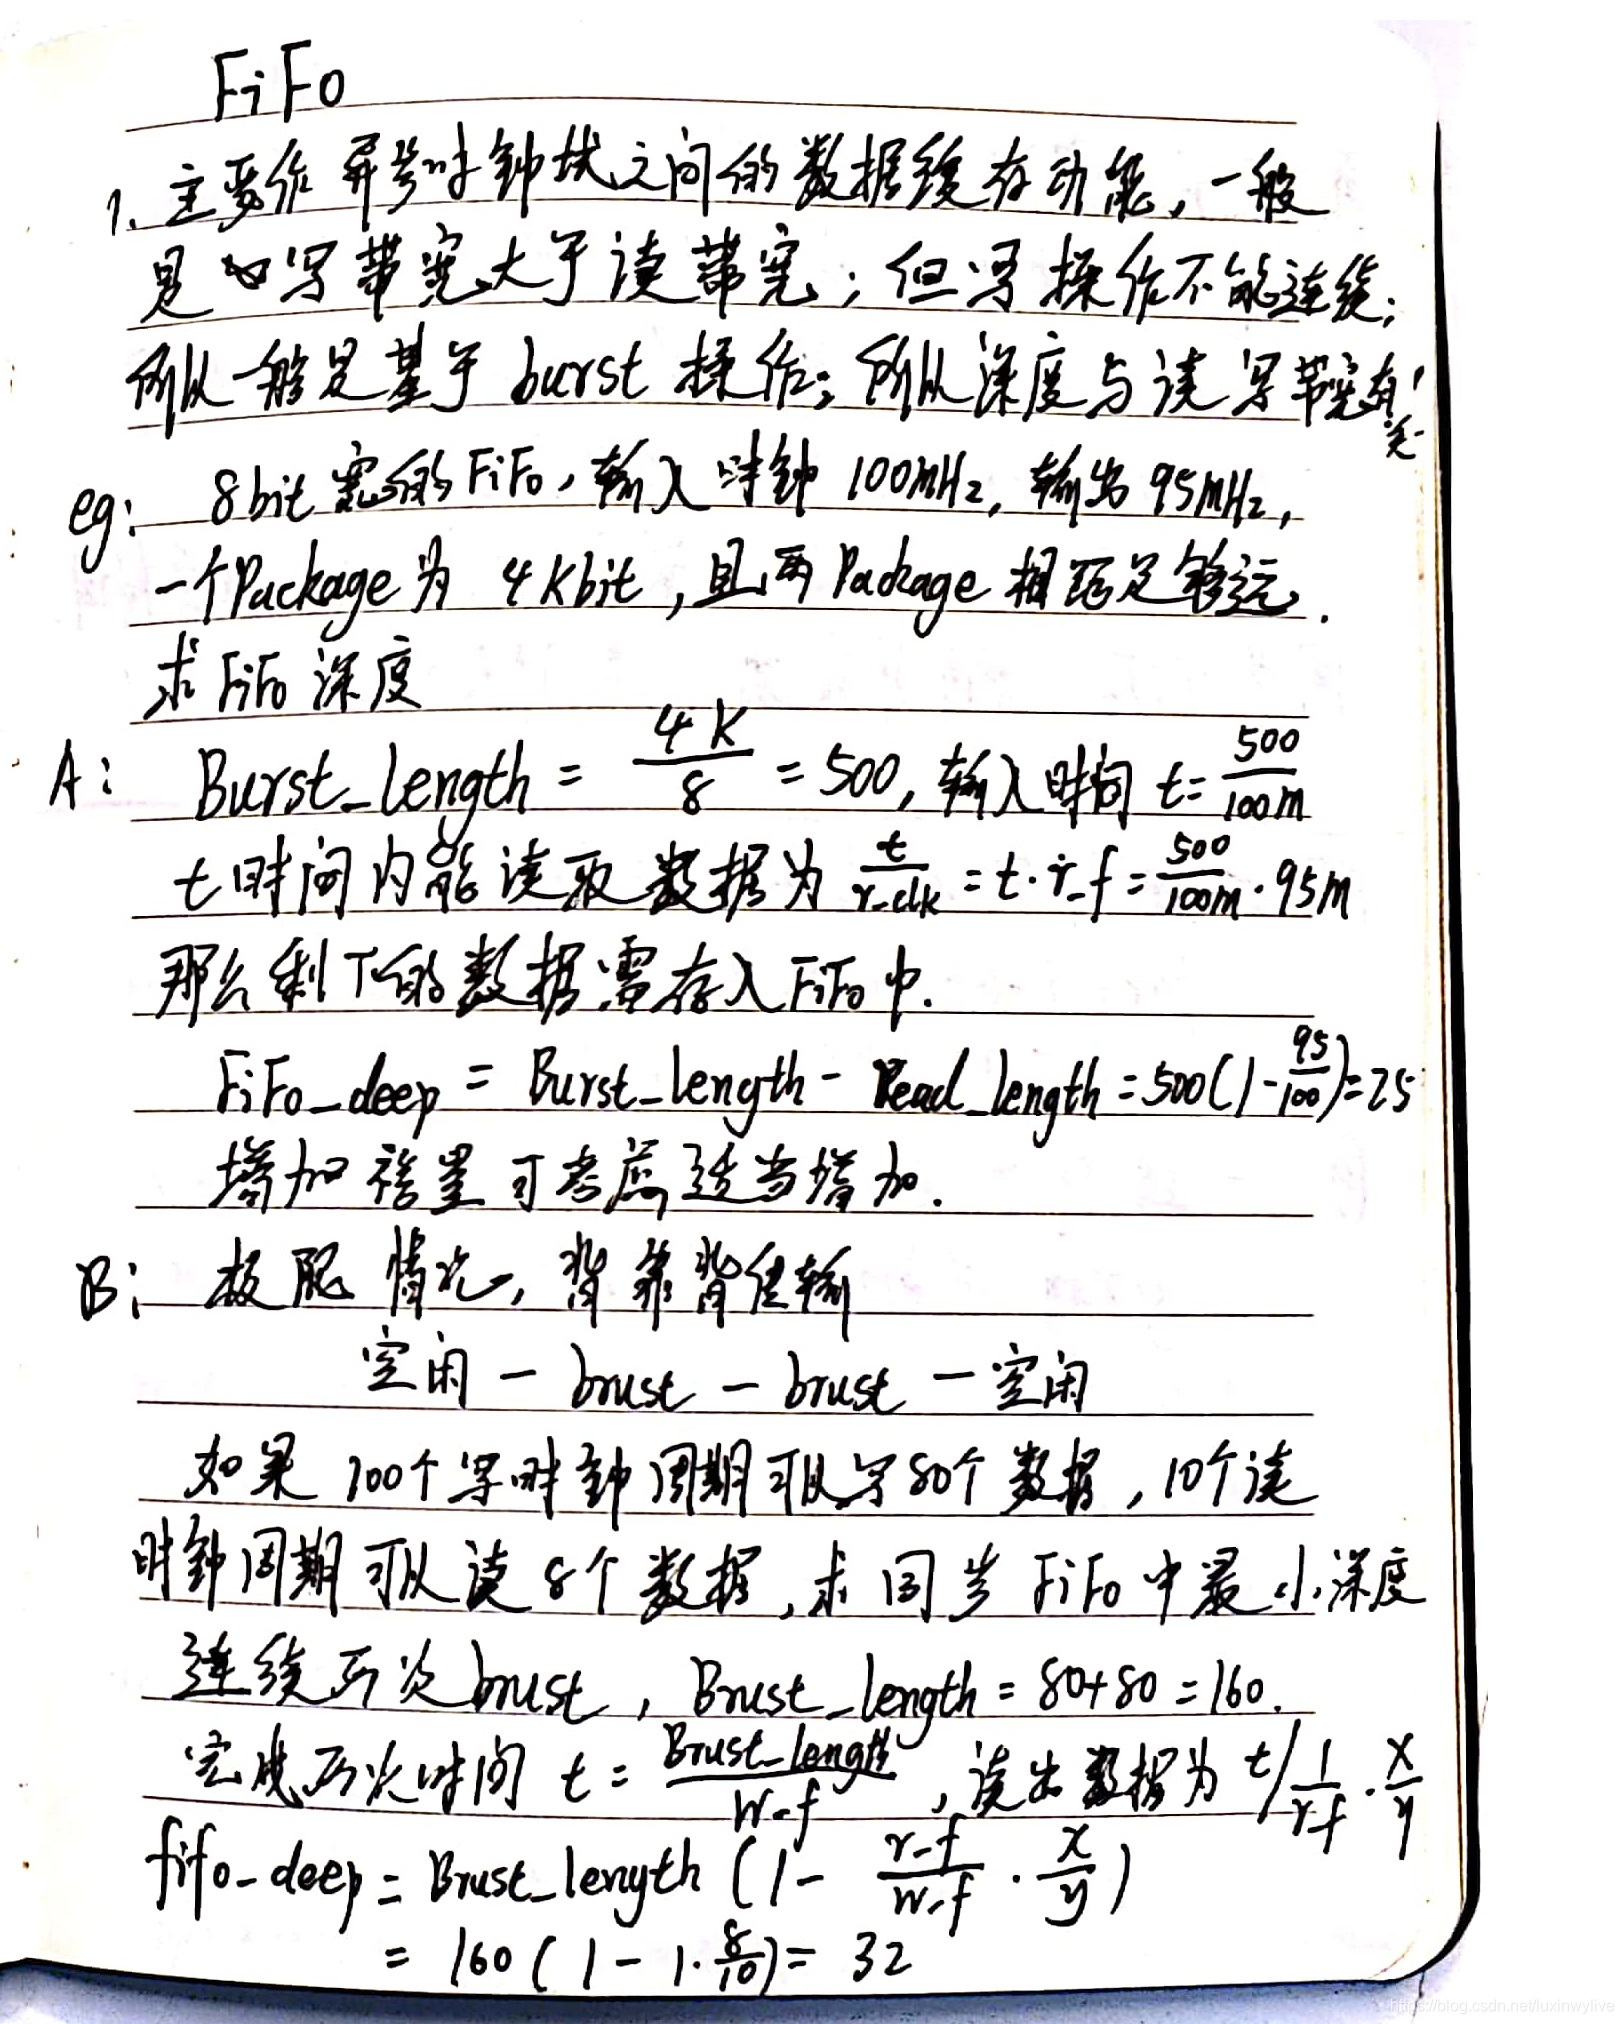 FiFo
1. 主要作异步时钟域之间的数据缓存功能，一般
是 写带宽大于读带宽；但写操作不能连续；
所以一般是基于 burst 操作；所以深度与读写带宽有
关
eg: 8bit 宽的FiFo，输入时钟 100MHz，输出 95MHz，
一个Package为 4Kbit，且两Package相距足够远.
求FiFo深度
A: Burst_length = 4K/8 = 500，输入时间 t= 500/100M
t时间内能读取数据为 t/r_clk = t·r_f = 500/100M·95M
那么剩下的数据需存入FiFo中.
FiFo_deep = Burst_length - Read_length = 500(1-95/100)=25
增加裕量可考虑适当增加.
B: 极限情况，背靠背传输
空闲 — brust — brust — 空闲
如果 100个写时钟周期可以写80个数据，10个读
时钟周期可以读8个数据，求同步FiFo中最小深度
连续两次brust，Brust_length = 80+80 =160.
完成两次时间 t = Brust_length/w-f，读出数据为 t/1/r-f·x/y
fifo-deep = Brust_length (1 - r-f/w-f · x/y)
= 160 ( 1 - 1·8/10) = 32
https://blog.csdn.net/luxinwylive